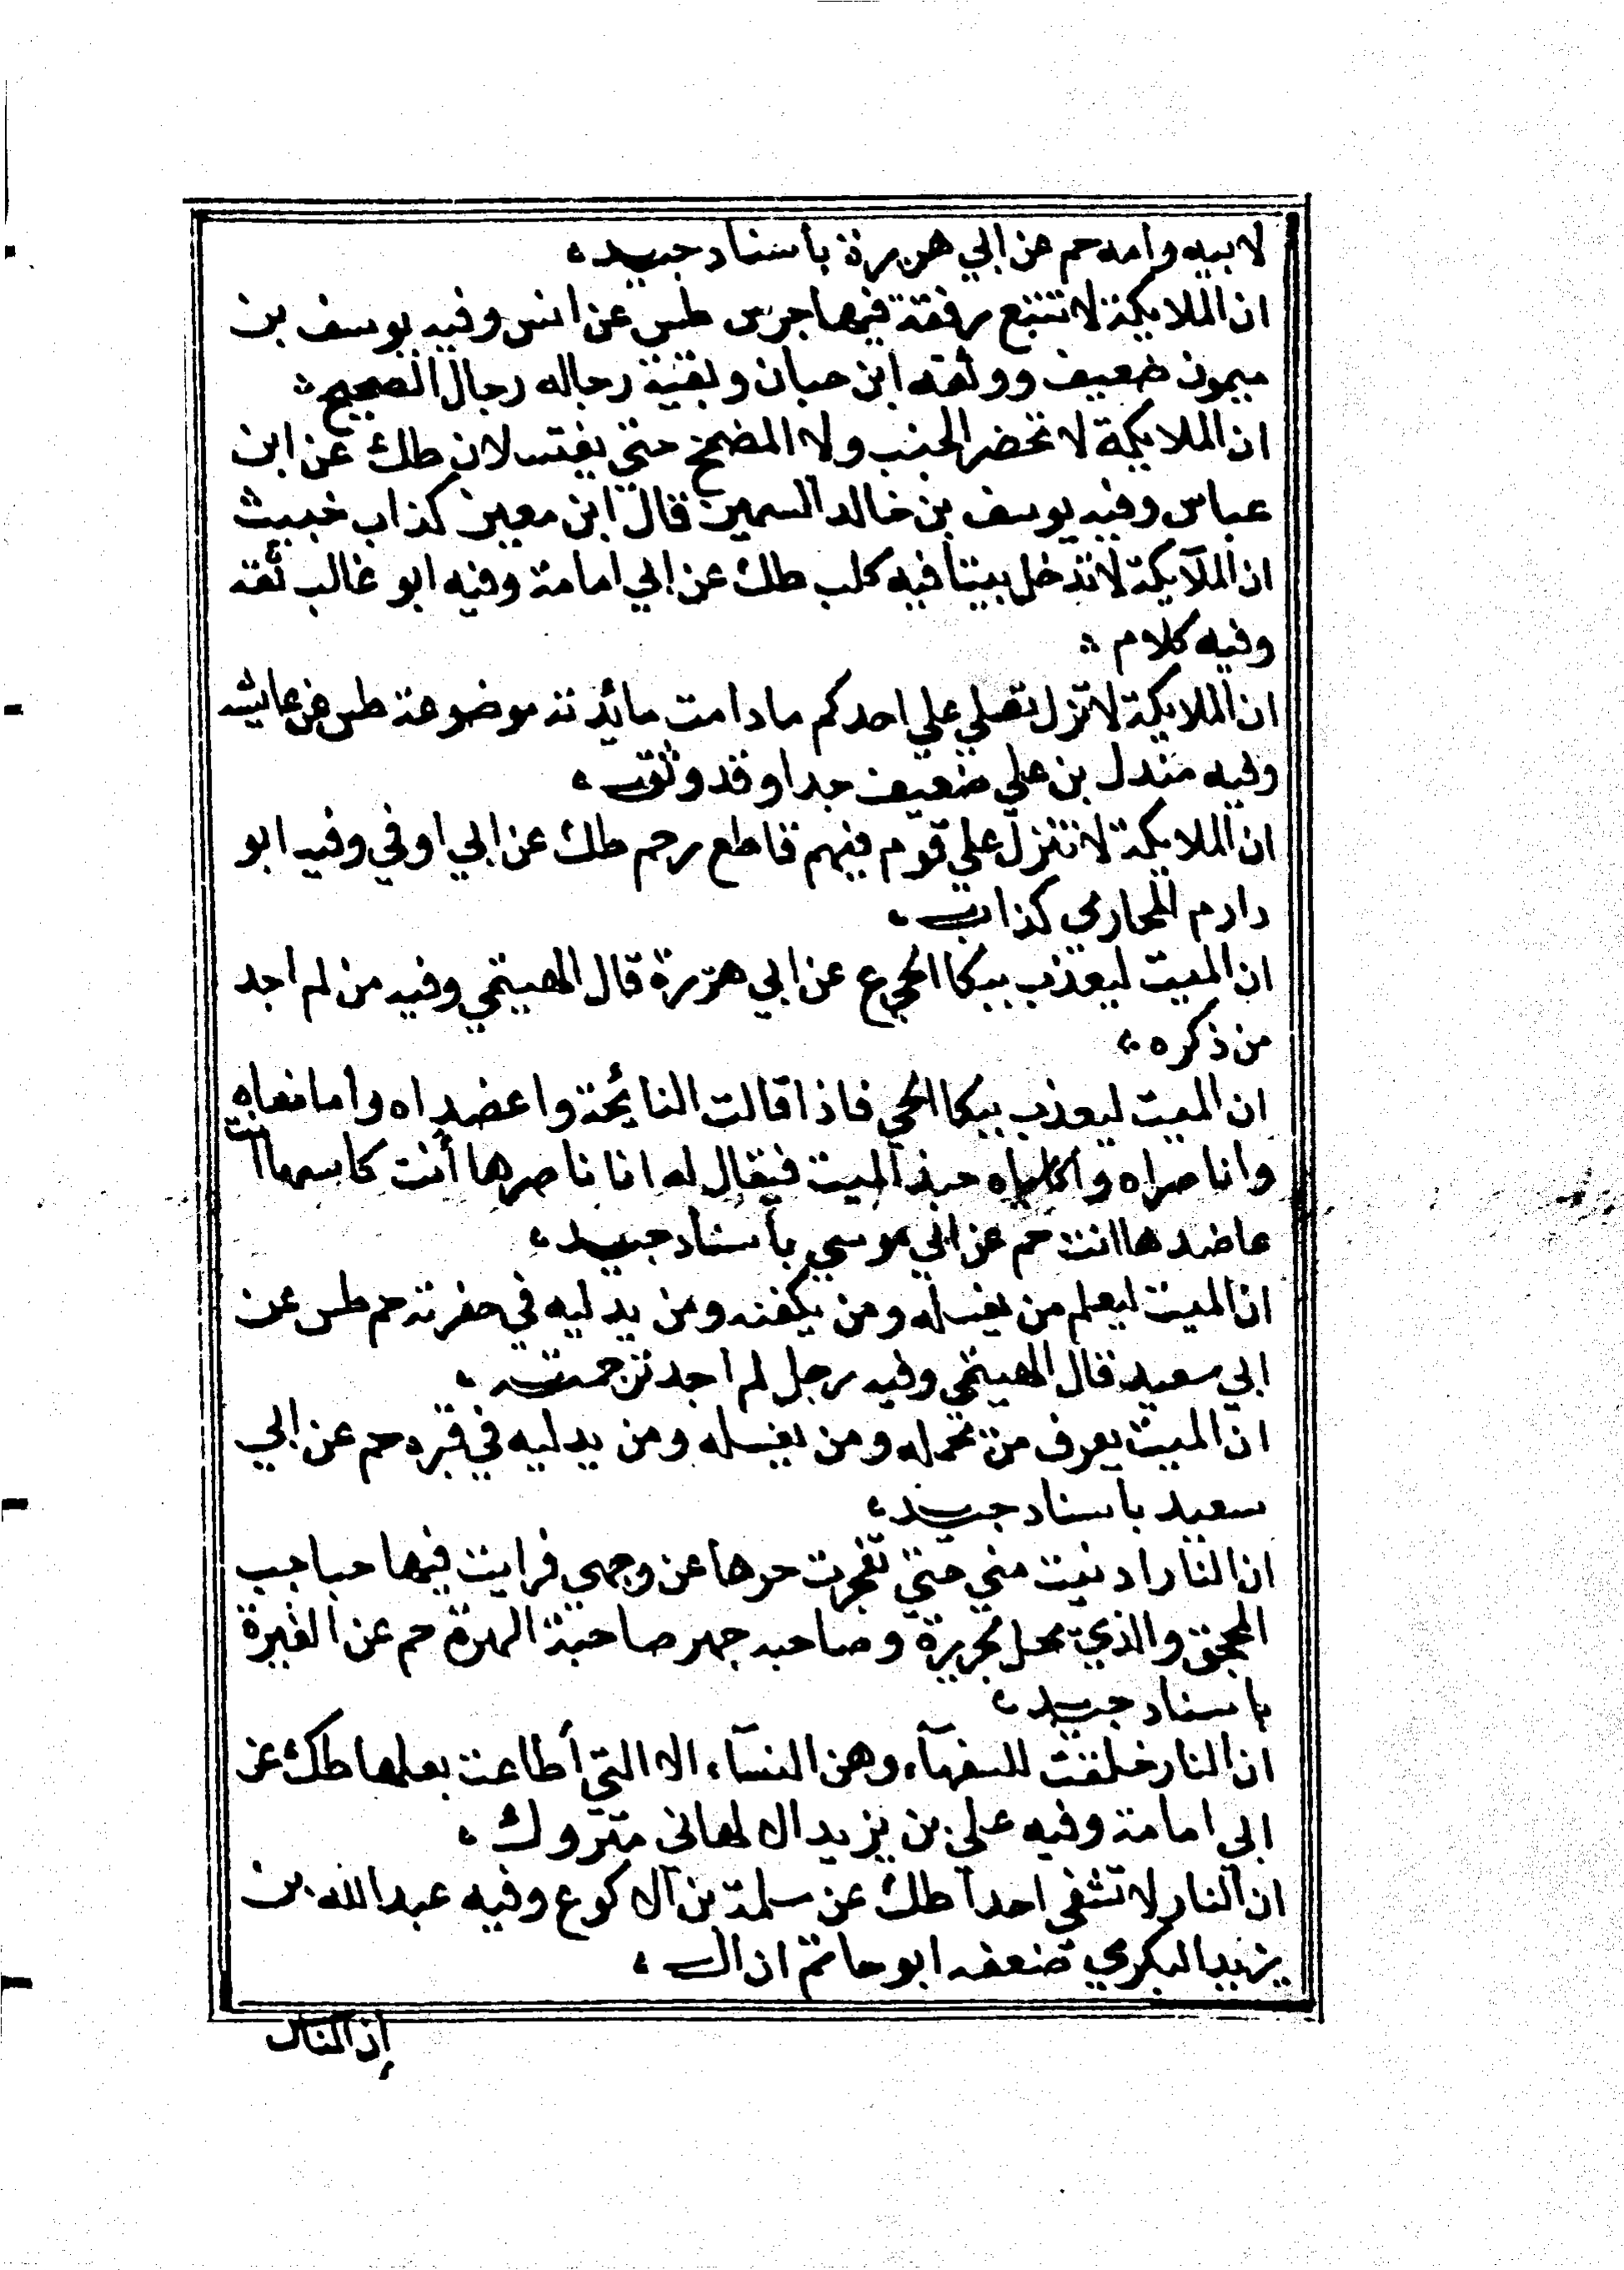 لابيه وامه حم عن ابي هريرة بأسناد جيد ،
ان الملايكة لا تتبع رفقة فيها جرس طس عن انس وفيه يوسف بن
ميمون ضعيف ووثقه ابن حبان وبقية رجاله رجال الصحيح ؛
ان الملايكة لا تحضر الجنب ولا المضمخ حتي يغتسلان طك عن ابن
عباس وفيه يوسف بن خالد السمين قال ابن معين كذاب خبيث
ان الملآيكة لا تدخل بيتا فيه كلب طك عن ابي امامة وفيه ابو غالب ثقة
وفيه كلام ؛
ان الملايكة لا تزل تصلي علي احدكم مادامت مائدته موضوعة طس عن عايشه
وفيه مندل بن علي ضعيف جدا وقد وثق ،
ان الملايكة لا تنزل علي قوم فيهم قاطع رحم طك عن ابي اوفي وفيه ابو
دارم المحاربي كذاب ،
ان الميت ليعذب ببكا الحي ع عن ابي هريرة قال الهيثمي وفيه من لم اجد
من ذكره ،
ان الميت ليعذب ببكا الحي فاذا قالت النائحة واعضداه وامانعاه
واناصراه واكاسياه حبذ الميت فيقال له انا ناصرها أنت كاسيها انت
عاضدها انت حم عن ابي موسي بأسناد جيد ،
ان الميت ليعلم من يغسله ومن يكفنه ومن يدليه في حفرته حم طس عن
ابي سعيد قال الهيثمي وفيه رجل لم اجد ترجمته ،
ان الميت يعرف من تحمله ومن يغسله ومن يدليه في قبره حم عن ابي
سعيد باسناد جيد ،
ان النار ادنيت مني حتي نفجرت حرها عن وجهي فرايت فيها صاحب
المحجن والذي بحل بحريرة وصاحبه حمير صاحبة الهرة حم عن المغيرة
باسناد جيد ،
ان النار خلقت للسفهآء وهن النسآء الا التي أطاعت بعلها طك عن
ابي امامة وفيه علي بن يزيد الالهانى متروك ،
ان النار لا تشفي احدا طك عن سلمة بن الاكوع وفيه عبدالله بن
يزيد البكري ضعفه ابو حاتم ان ال ،
إن النار